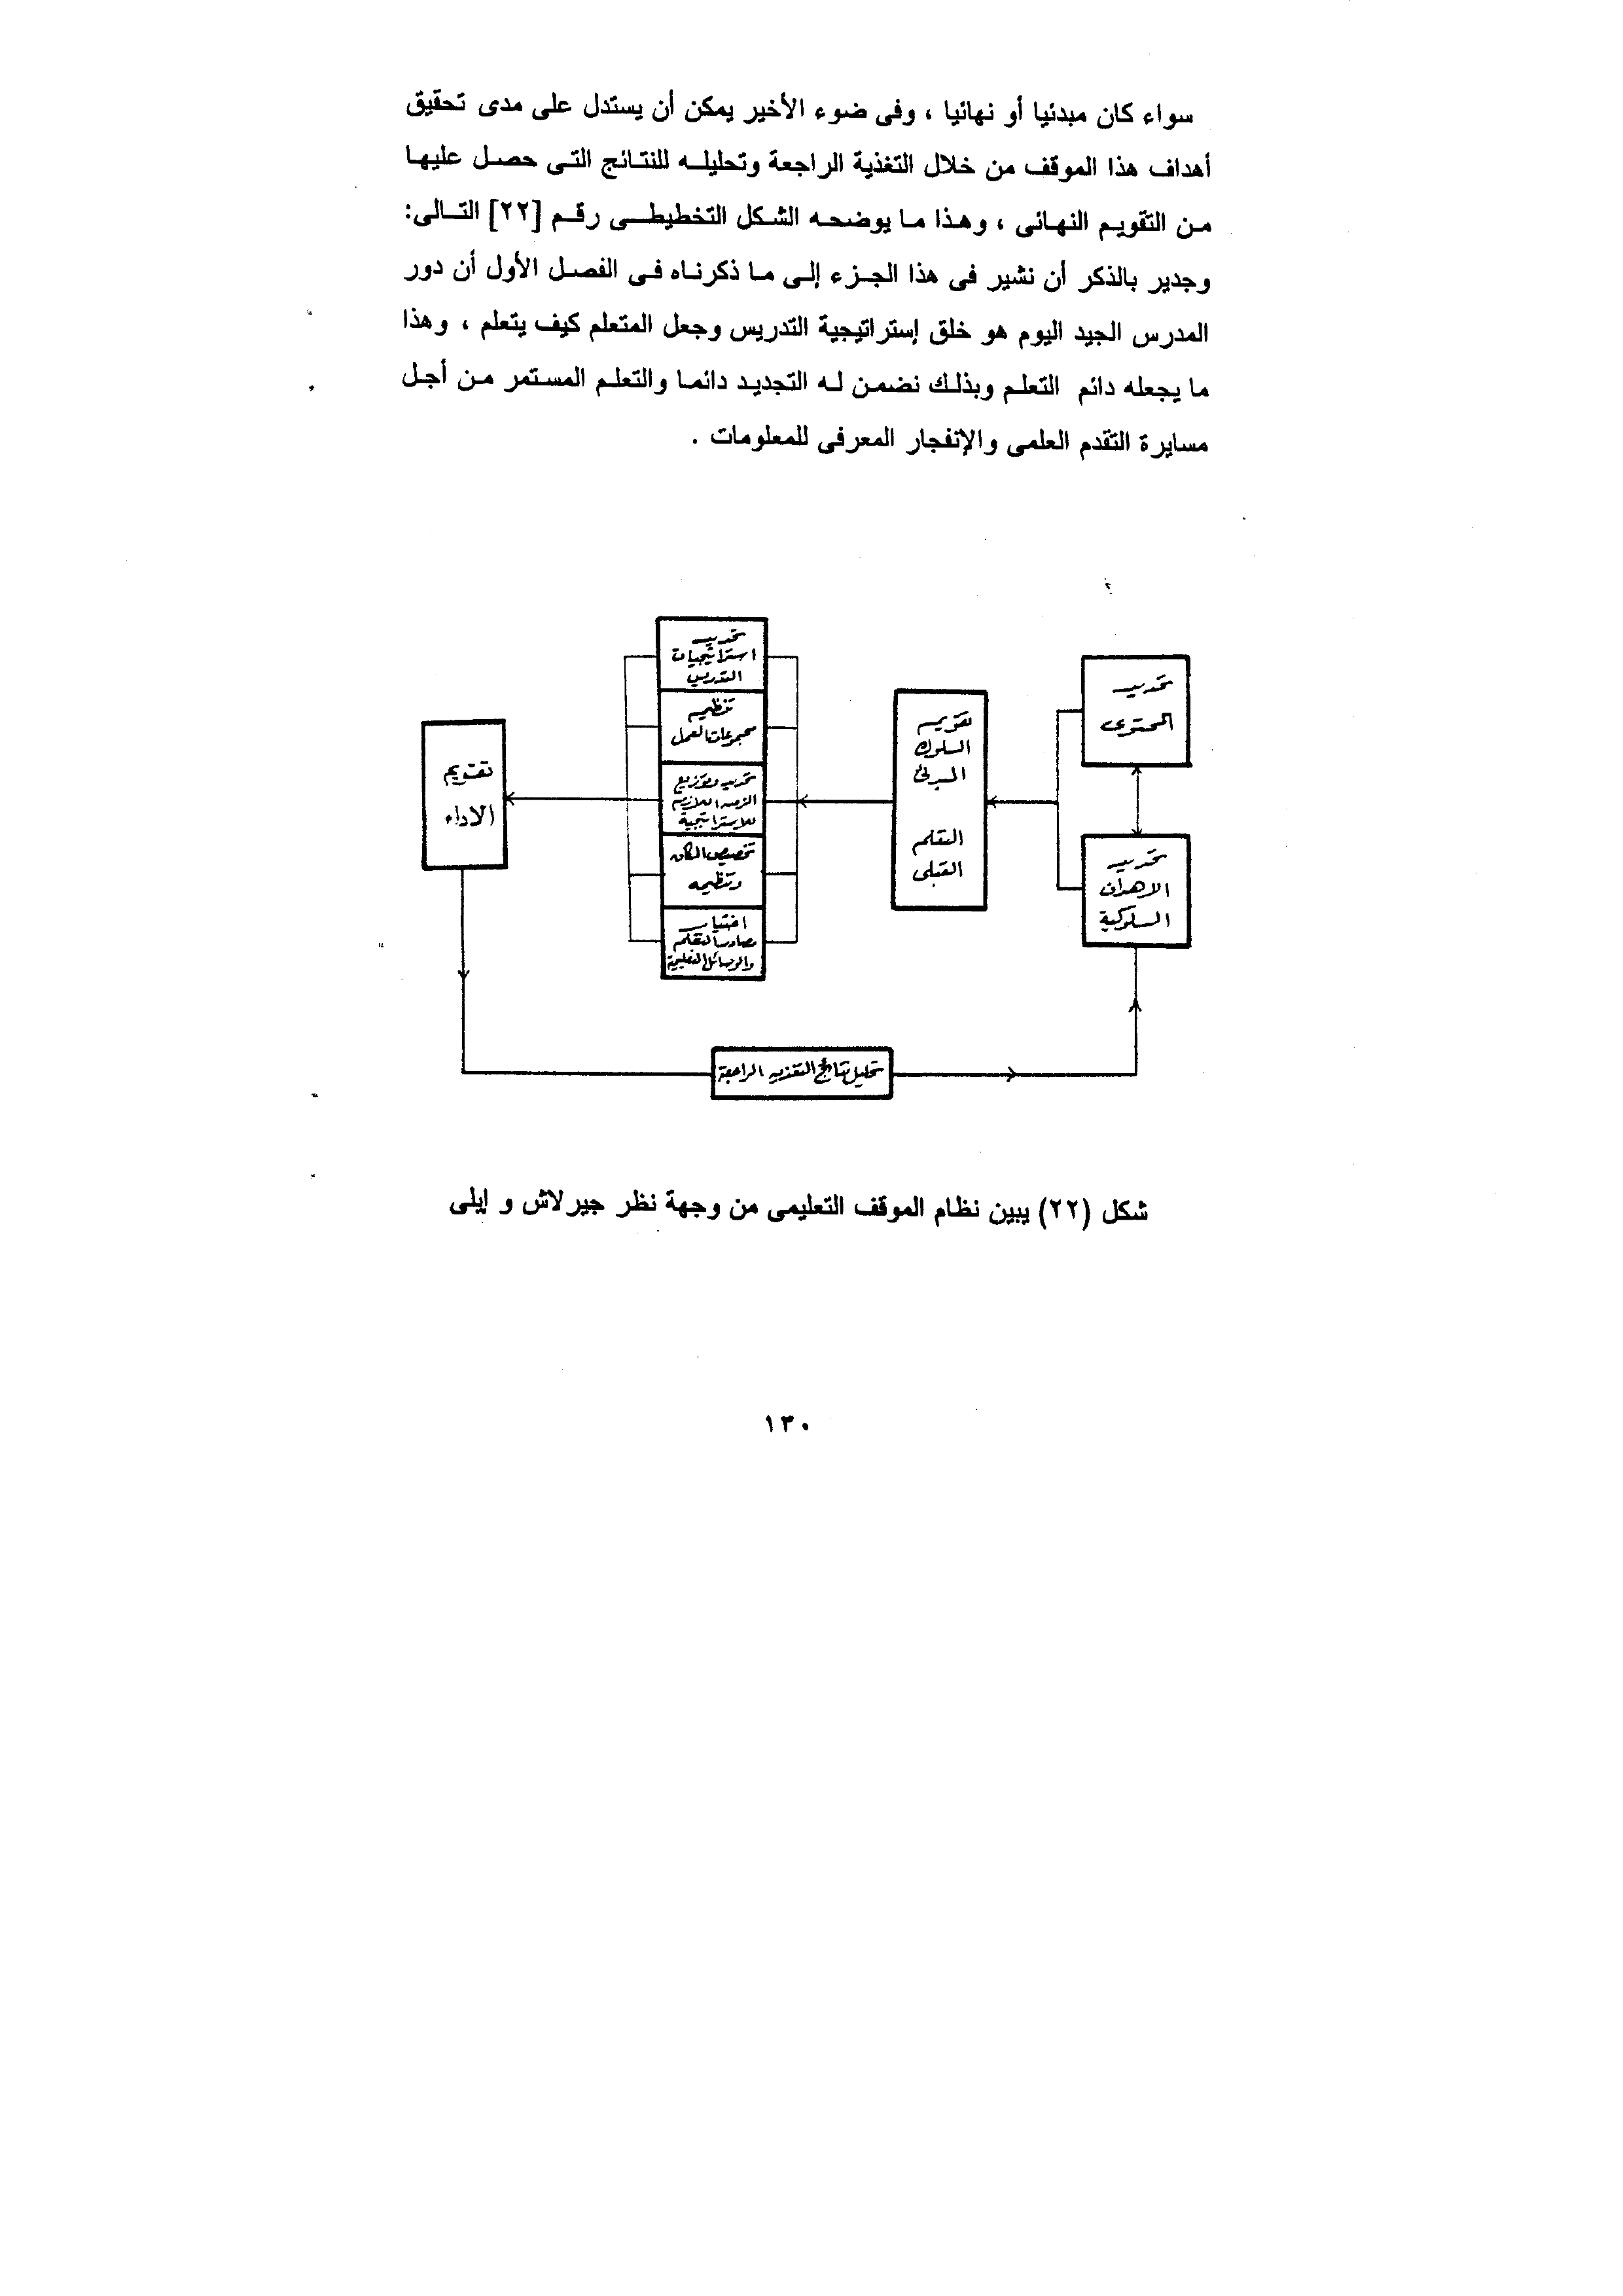 سواء كان مبدئيا أو نهائيا ، وفى ضوء الأخير يمكن أن يستدل على مدى تحقيق
أهداف هذا الموقف من خلال التغذية الراجعة وتحليله للنتائج التى حصل عليها
من التقويم النهائى ، وهذا ما يوضحه الشكل التخطيطى رقم [٢٢] التالى:
وجدير بالذكر أن نشير فى هذا الجزء إلى ما ذكرناه فى الفصل الأول أن دور
المدرس الجيد اليوم هو خلق إستراتيجية التدريس وجعل المتعلم كيف يتعلم ، وهذا
ما يجعله دائم التعلم وبذلك نضمن له التجديد دائما والتعلم المستمر من أجل
مسايرة التقدم العلمى والإنفجار المعرفى للمعلومات .
تحديد
المحتوى
تحديد
الاهداف
السلوكية
تقويم
السلوك
المبدئى
التعلم
القبلى
تحديد
استراتيجيات
التدريس
تنظيم
مجموعات العمل
تحديد وتوزيع
الزمن اللازم
للاستراتيجية
تخصيص المكان
وتنظيمه
اختيار
مصادر التعلم
والوسائل التعليمية
تقويم
الاداء
تحليل نتائج التغذيه الراجعة
شكل (٢٢) يبين نظام الموقف التعليمى من وجهة نظر جيرلاش و إيلى
١٣٠